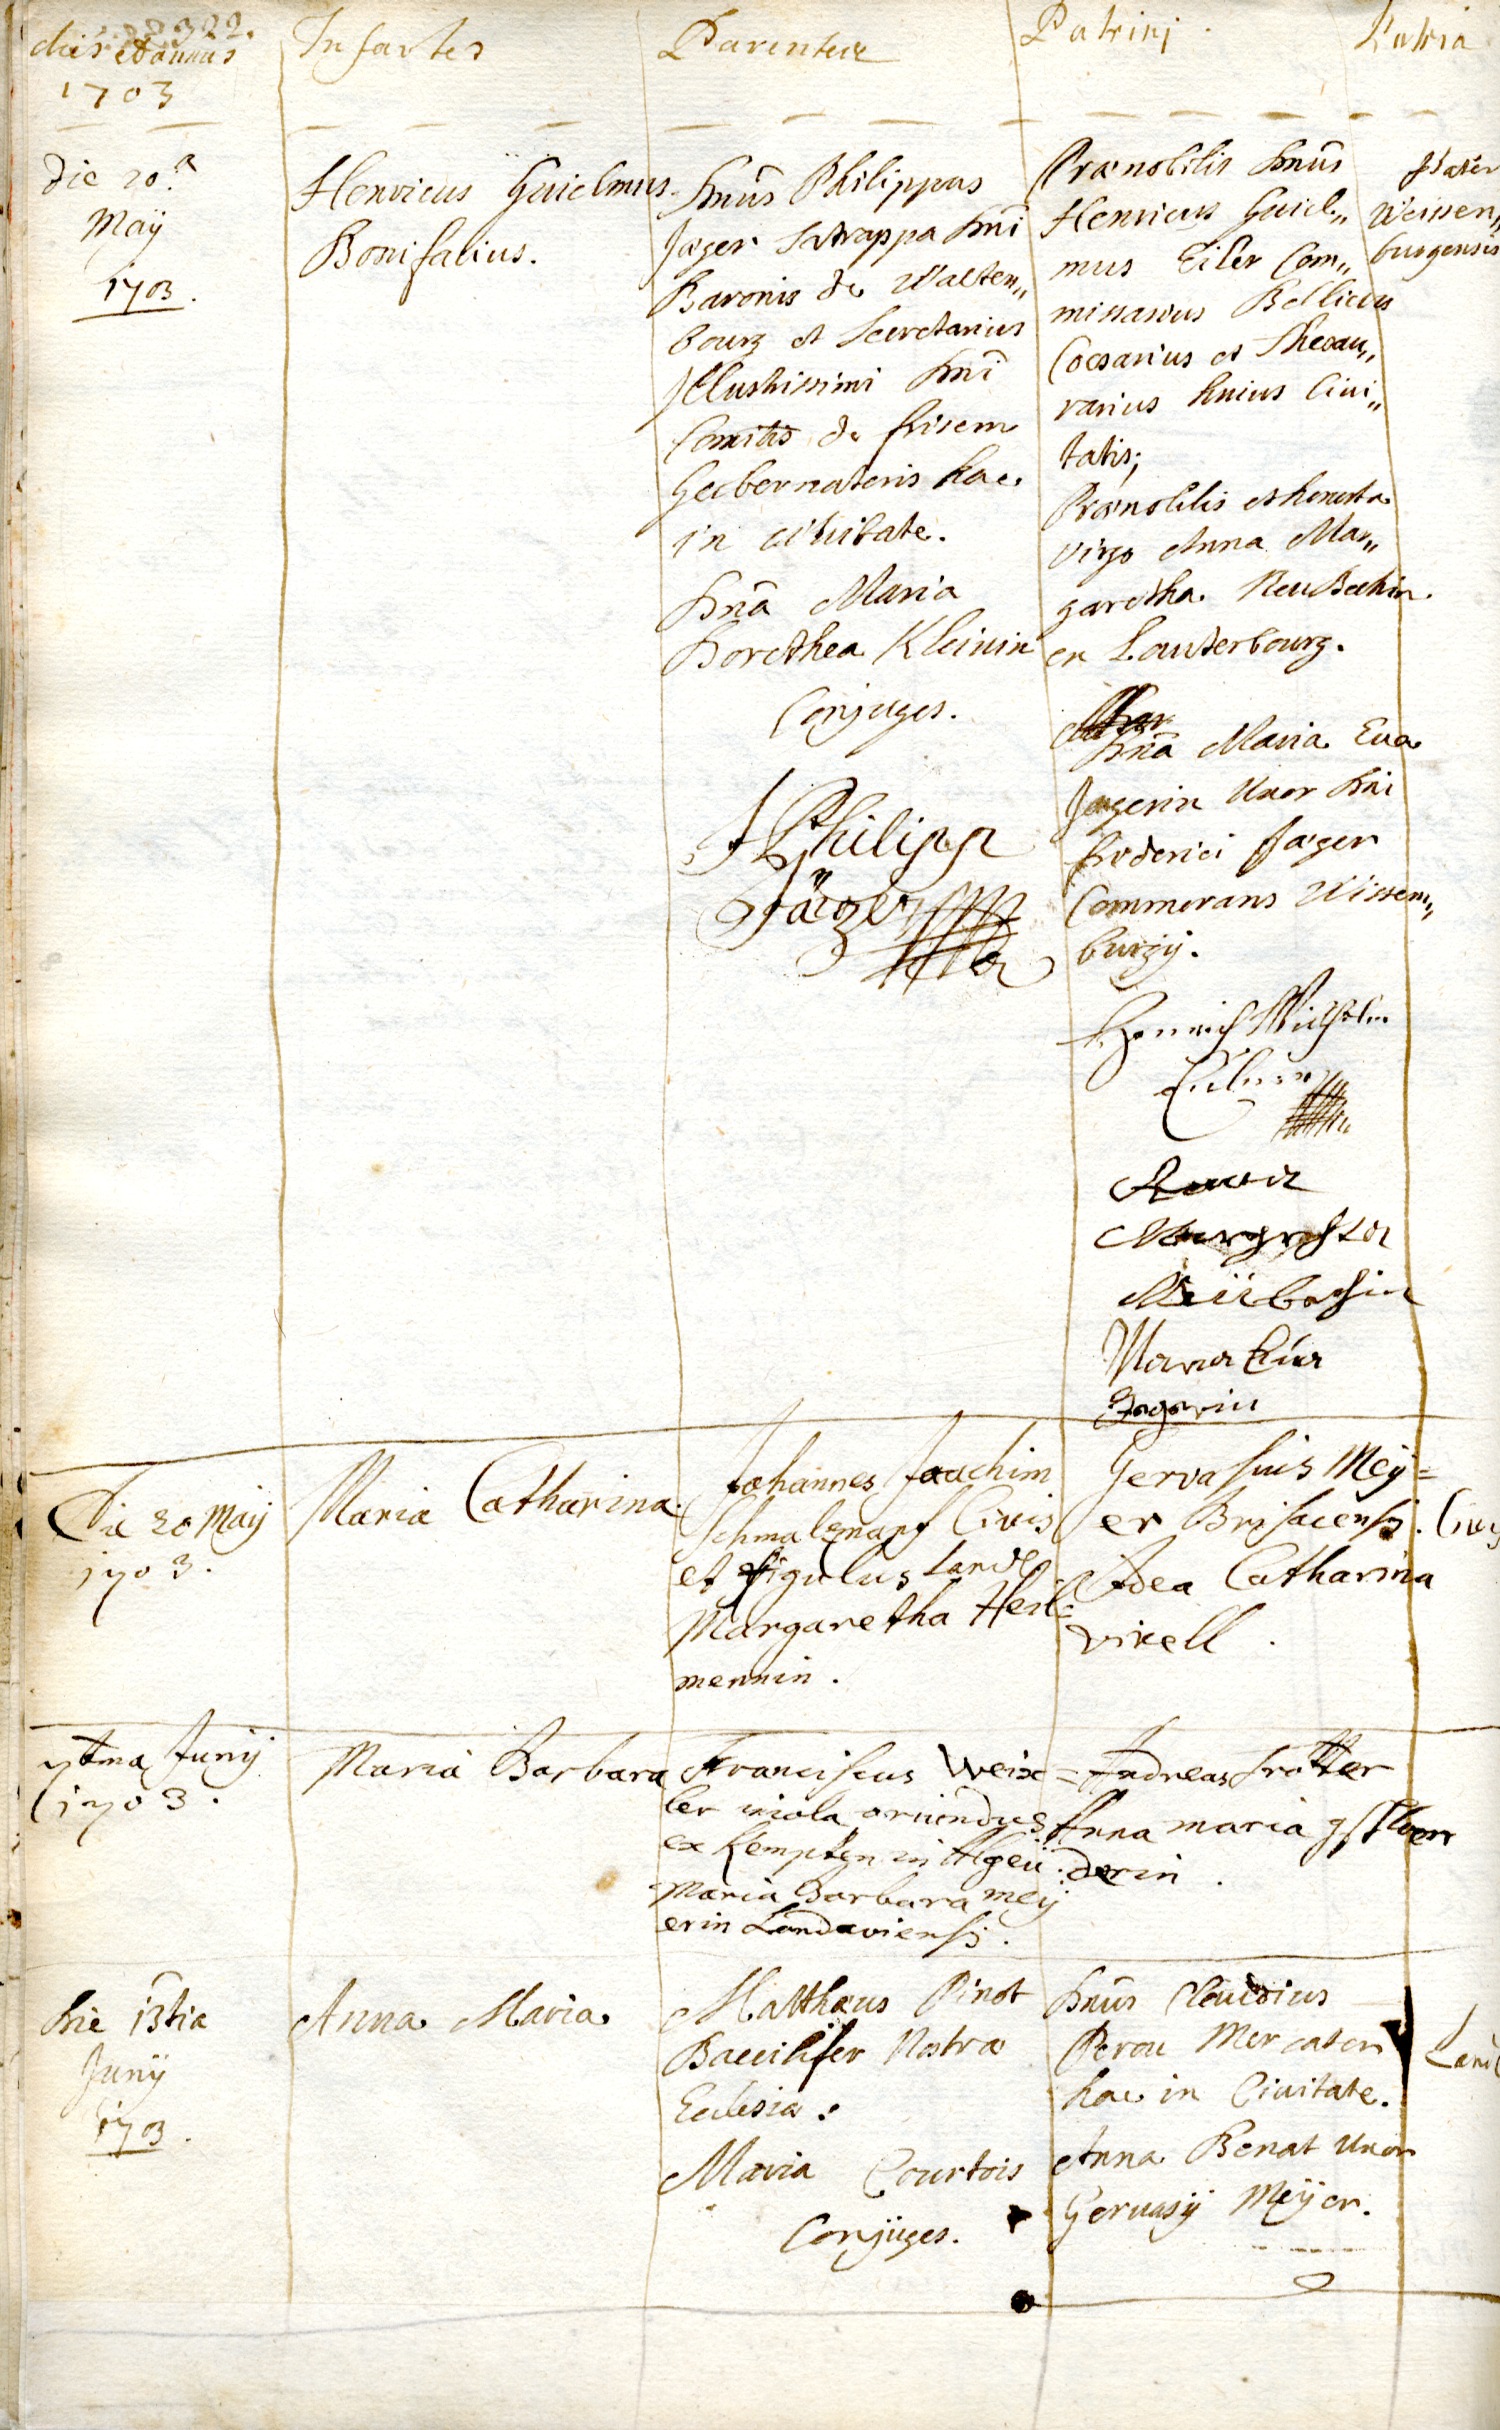 dies et annus
1703
Infantes
Parentes
Patrini
Patria
die 20.a
Maÿ
1703.
Henricus Guielmus
Bonifatius.
Dnūs Philippus
Jæger Satrappa Dnī
Baronis de Walten„
bourg et Secretarius
Illustrissimi Dnī
Comitis de frisem
Gubernatoris hac
in civitate.
Dnā Maria
Dorothea Kleinin
Conjuges.
Philipp
Jäger
Prænobilis Dnūs
Henricus Guiel„
mus Eiler Com„
missarius Bellicus
Cæsarius et Thesau„
rarius huius Civi„
tatis;
Prænobilis et honesta
virgo Anna Mar„
garetha Neubechin
en Lauterbourg.
Dnā Maria Eva
Jægerin Uxor Dni
frederici Jæger
Commorans Wissem„
burgÿ.
Pater
Weissen„
burgensis
Henrich Wilhelm
Anna
Margretha
Neübechin
Maria Eva
Jagerin
Die 20 Maÿ
1703.
Maria Catharina.
Johannes Joachim
Schmalznapf Civis
et figulus Land.
Margaretha Heil=
mennin.
Gervasius Meÿ=
er Brisacensis.
Catharina
virell.
Junÿ
1703.
Maria Barbara
Franciscus Weix=
ler incola oriundus
ex Kempten in Algeü.
Maria Barbara meÿ
erin Landaviensis.
Andreas
Anna maria
derin.
Die 13tia
Junÿ
1703.
Anna Maria
Matthæus Pinot
Bacilifer Nostræ
Ecclesiæ.
Maria Courtois
Conjuges.
Dnūs Claudius
Perou Mercator
hac in Civitate.
Anna Benat Uxor
Gervasÿ Meÿer.
Land